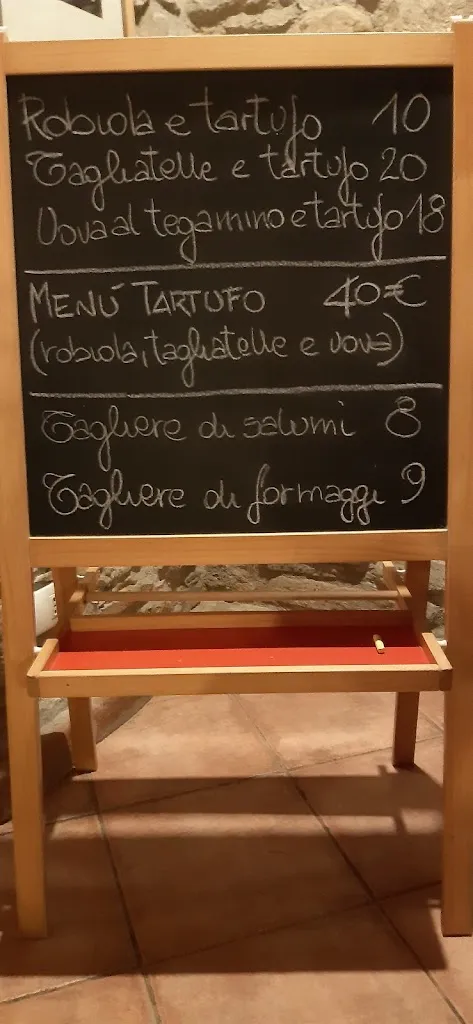 Robiola e tartufo 10
Tagliatelle e tartufo 20
Uova al tegamino e tartufo 18
MENÚ TARTUFO 40€
(robiola, tagliatelle e uova)
Tagliere di salumi 8
Tagliere di formaggi 9